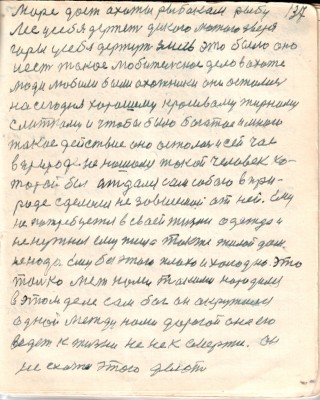 137
Море дает охоты рыбакам рыбу
Лес у себя держет дикого лютого зверя
горы у себя держут змеев это было оно
есть такое любительное дело в охоте
люди любили были охотники они остались
на сегодня хорошему красивому жирному
и чтобы было богатое и много
такие действие оно осталося и сей час
в природе не нашлось такой человек ко-
торой бы отдался сам собою в при-
роде сделался не зависимой от ней. Ему
не потребуется в своей жизни одежда и
не нужная ему пища также жилой дом.
некогда ему бы этого плохо и холодно. Это
только мет ними такими народами
в этом деле сам бог он окружился
одной между нами дорогой она его
ведет к жизни не как смерти. Он
не скажи этого делать